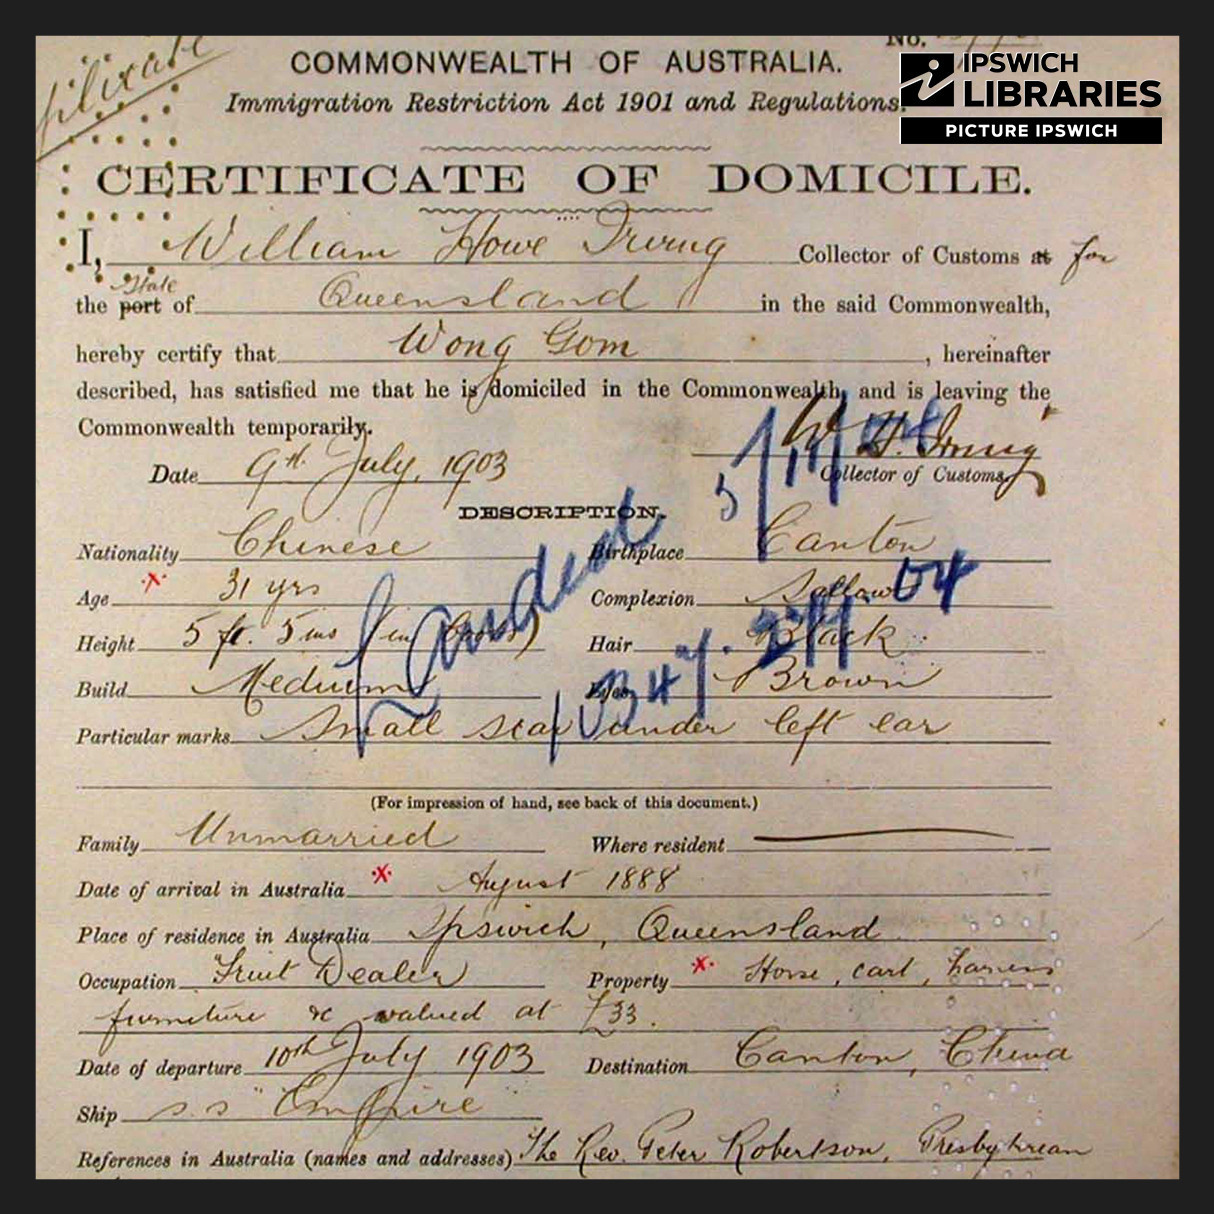 No.
COMMONWEALTH OF AUSTRALIA.
Immigration Restriction Act 1901 and Regulations.
IPSWICH
LIBRARIES
PICTURE IPSWICH
CERTIFICATE OF DOMICILE.
I, William Howe Irving Collector of Customs at for
State
the port of Queensland in the said Commonwealth,
hereby certify that Wong Gom, hereinafter
described, has satisfied me that he is domiciled in the Commonwealth, and is leaving the
Commonwealth temporarily.
W. H. Irving
Date 9th July, 1903 Collector of Customs
DESCRIPTION.
Nationality Chinese Birthplace Canton
Age x 31 yrs Complexion Sallow
Height 5 ft. 5 ins (in boots) Hair Black
Landed
Build Medium Eyes Brown
Particular marks Small scar under left ear
(For impression of hand, see back of this document.)
Family Unmarried Where resident
Date of arrival in Australia x August 1888
Place of residence in Australia Ipswich, Queensland
Occupation Fruit Dealer Property x Horse, cart, harness
furniture &c valued at £33.
Date of departure 10th July 1903 Destination Canton, China
Ship s.s "Empire"
References in Australia (names and addresses) The Rev. Peter Robertson, Presbyterian